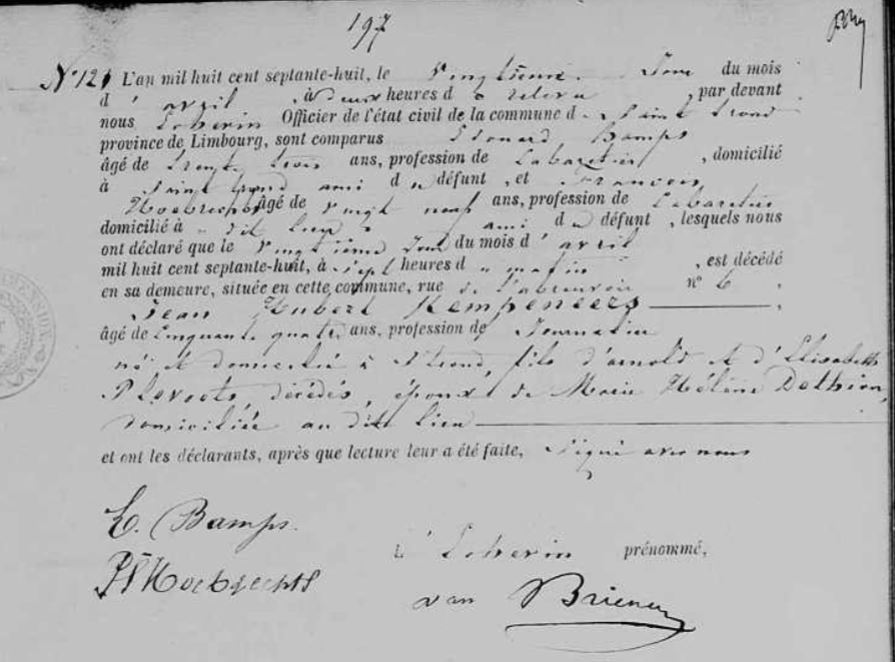 197
N° 121 L'an mil huit cent septante-huit, le Vingtième Jour du mois
d'avril, à deux heures d relevée, par devant
nous Officier de l'état civil de la commune d Saint Trond
province de Limbourg, sont comparus Edouard Bamps
âgé de trente trois ans, profession de Cabaretier, domicilié
à Saint trond ami du défunt, et François
Hoebrechts âgé de vingt neuf ans, profession de Cabaretier
domicilié à dit lieu ami du défunt, lesquels nous
ont déclaré que le Vingtième Jour du mois d'avril
mil huit cent septante-huit, à sept heures du matin, est décédé
en sa demeure, située en cette commune, rue de l'abreuvoir n° 6,
Jean Hubert Kempeneers
âgé de Cinquante quatre ans, profession de Journalier
né et domicilié à St trond, fils d'arnold et d'Elisabeth
décédés, époux de Marie Hélène Dethier,
domiciliée au dit lieu
et ont les déclarants, après que lecture leur a été faite, signé avec nous
E. Bamps.
Hoebrechts
prénommé.
van Brienen